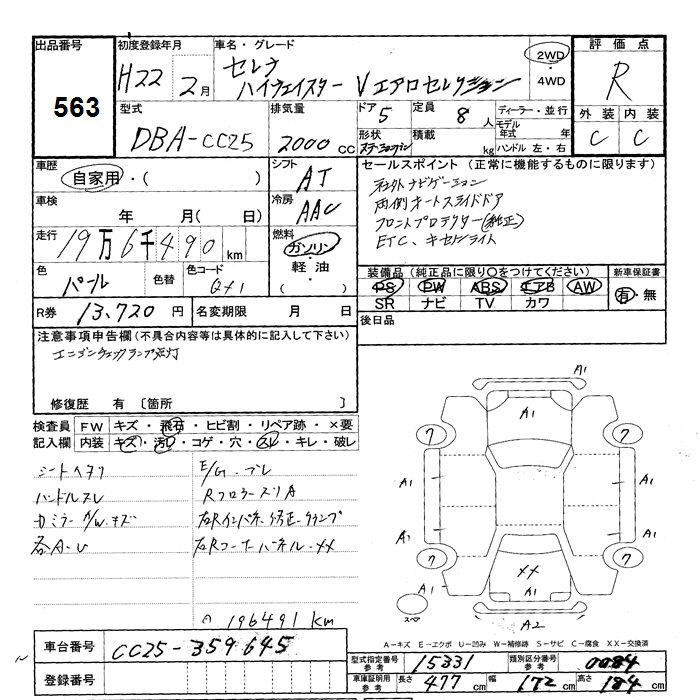 出品番号
563
初度登録年月
H22 2月
車名・グレード
セレナ
ハイウェイスター Vエアロセレクション
2WD
・
4WD
評価点
R
外装 内装
C C
型式
DBA-CC25
排気量
2000 CC
ドア 5
定員 8 人
形状 ステーションワゴン
積載 kg
ディーラー・並行
モデル
年式 年
ハンドル 左・右
車歴
自家用・( )
シフト
AT
車検
年 月( 日)
冷房
AAC
走行
19万6千490km
燃料
ガソリン
・
軽油
・
( )
色
パール
色替
色コード
QX1
R券 13,720円
名変期限 月 日
セールスポイント (正常に機能するものに限ります)
社外ナビゲーション
両側オートスライドドア
フロントプロテクター(純正)
ETC、キセノンライト
装備品 (純正品に限り○をつけてください)
PS PW ABS エアB AW
SR ナビ TV カワ
新車保証書
有・無
後日品
注意事項申告欄(不具合内容等は具体的に記入して下さい)
エンジンチェックランプ点灯
修復歴 有 〔箇所 〕
検査員 FW キズ・飛石・ヒビ割・リペア跡・×要
記入欄 内装 キズ・汚レ・コゲ・穴・スレ・キレ・破レ
シートヘタリ
ハンドルスレ
E/G・ブレ
各A・U
左Rコーナーパネル・××
196491 km
A1
A1
7 7
A1 A1
A1
7 7
××
A1 A1
A1
スペア
A2
A-キズ E-エクボ U-凹み W-補修跡 S-サビ C-腐食 XX-交換済
車台番号 CC25-359645
登録番号
型式指定番号 参考 15331
類別区分番号 参考 0084
車庫証明用 参考 長さ 477 cm 幅 172 cm 高さ 184 cm